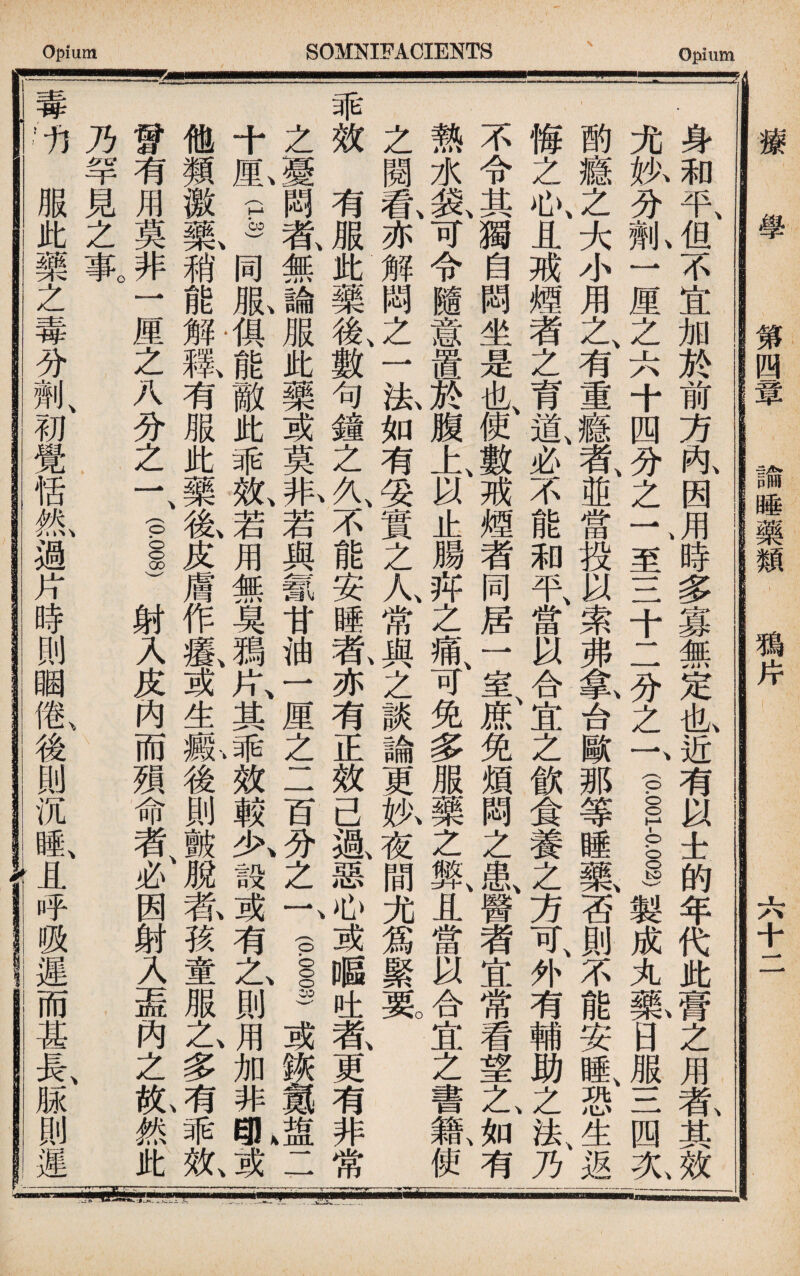 Opium SOMNIFACIENTS Opium
療學 第四章 論睡藥類 鴉片 六十二
身和平、但不宜加於前方內、因用時多寡無定也、近有以士的年代此膏之用者、其效
尤妙、分劑、一厘之六十四分之一、至三十二分之一、(0.001-0.002)製成丸藥、日服三四次、
酌癮之大小用之、有重癮者、並當投以索弗拿、台歐那等睡藥、否則不能安睡、恐生返
悔之心、且戒煙者之育道、必不能和平、當以合宜之飲食養之方可、外有輔助之法、乃
不令其獨自悶坐是也、使數戒煙者同居一室、庶免煩悶之患、醫者宜常看望之、如有
熱水袋、可令隨意置於腹上、以止腸疞之痛、可免多服藥之弊、且當以合宜之書籍、使
之閱看、亦解悶之一法、如有妥實之人、常與之談論更妙、夜間尤爲緊要。
乖效 有服此藥後、數句鐘之久、不能安睡者、亦有正效已過、惡心或嘔吐者、更有非常
之憂悶者、無論服此藥或莫非、若與䨏甘油一厘之二百分之一、(0.0003)或鉃氭塩二
十厘、(1.3)同服、俱能敵此乖效、若用無臭鴉片、其乖效較少、設或有之、則用加非印、或
他類激藥、稍能解釋、有服此藥後、皮膚作癢、或生瘢、後則皵脫者、孩童服之、多有乖效、
曾有用莫非一厘之八分之一、(0.008)射入皮內而殞命者、必因射入盂內之故、然此
乃罕見之事。
毒力 服此藥之毒分劑、初覺恬然、過片時則睏倦、後則沉睡、且呼吸遲而甚長、脉則遲